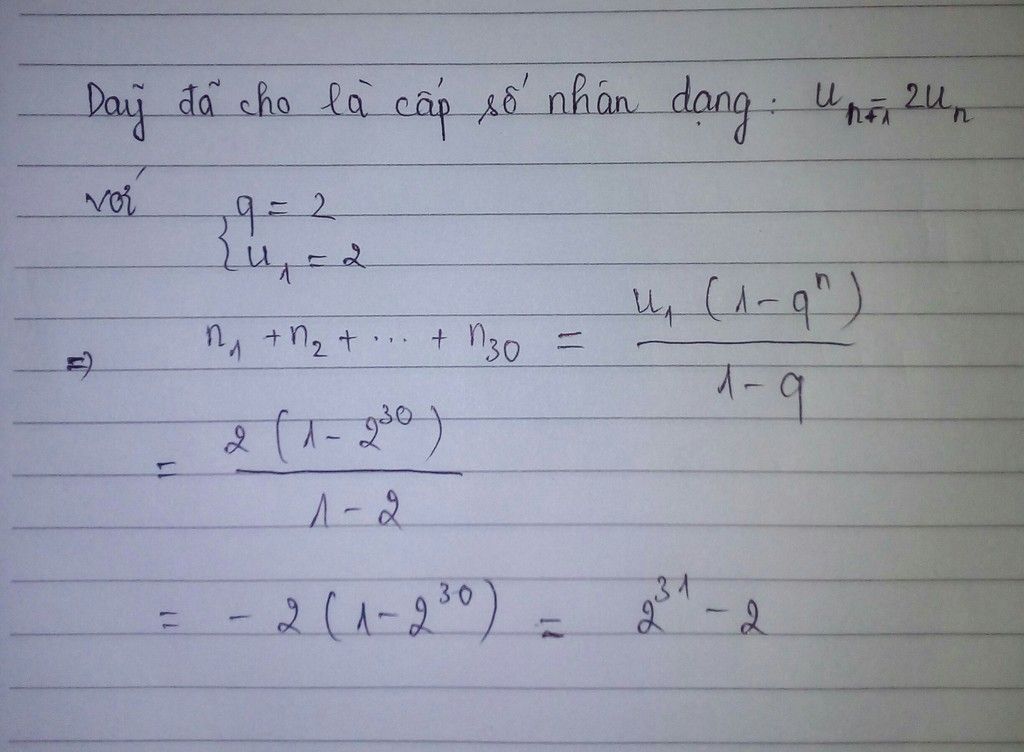 Dãy đã cho là cấp số nhân dạng: u_{n+1} = 2u_n
với { q = 2
u_1 = 2
=> n_1 + n_2 + ... + n_{30} = \frac{u_1 (1 - q^n)}{1 - q}
= \frac{2 (1 - 2^{30})}{1 - 2}
= - 2 (1 - 2^{30}) = 2^{31} - 2